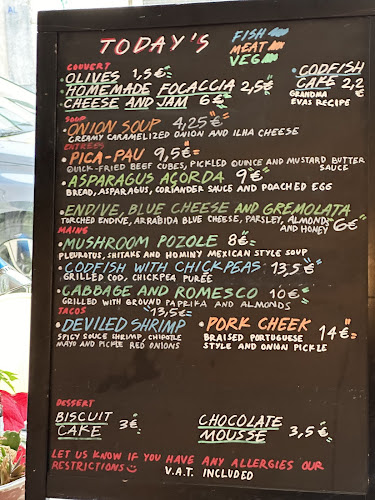 TODAY'S
FISH
MEAT
VEG
COUVERT
• OLIVES 1,5€
HOMEMADE FOCACCIA 2,5€
CHEESE AND JAM 6€
• CODFISH
CAKE 2,2€
GRANDMA
EVAS RECIPE
SOUP
• ONION SOUP 4,25€
CREAMY CARAMELIZED ONION AND ILHA CHEESE
ENTREES
• PICA-PAU 9,5€
QUICK-FRIED BEEF CUBES, PICKLED QUINCE AND MUSTARD BUTTER
SAUCE
• ASPARAGUS AÇORDA 9€
BREAD, ASPARAGUS, CORIANDER SAUCE AND POACHED EGG
• ENDIVE, BLUE CHEESE AND GREMOLATA
TORCHED ENDIVE, ARRABIDA BLUE CHEESE, PARSLEY, ALMOND
AND HONEY 6€
MAINS
• MUSHROOM POZOLE 8€
PLEUROTUS, SHITAKE AND HOMINY MEXICAN STYLE SOUP
• CODFISH WITH CHICKPEAS 13,5€
GRILLED COD, CHICKPEA PURÉE
• CABBAGE AND ROMESCO 10€
GRILLED WITH GROUND PAPRIKA AND ALMONDS
TACOS
13,5€
• DEVILED SHRIMP
SPICY SOUCE SHRIMP, CHIPOTLE
MAYO AND PICKLE RED ONIONS
• PORK CHEEK 14€
BRAISED PORTUGUESE
STYLE AND ONION PICKLE
DESSERT
BISCUIT
CAKE 3€
CHOCOLATE
MOUSSE 3,5€
LET US KNOW IF YOU HAVE ANY ALLERGIES OUR
RESTRICTIONS
V.A.T. INCLUDED